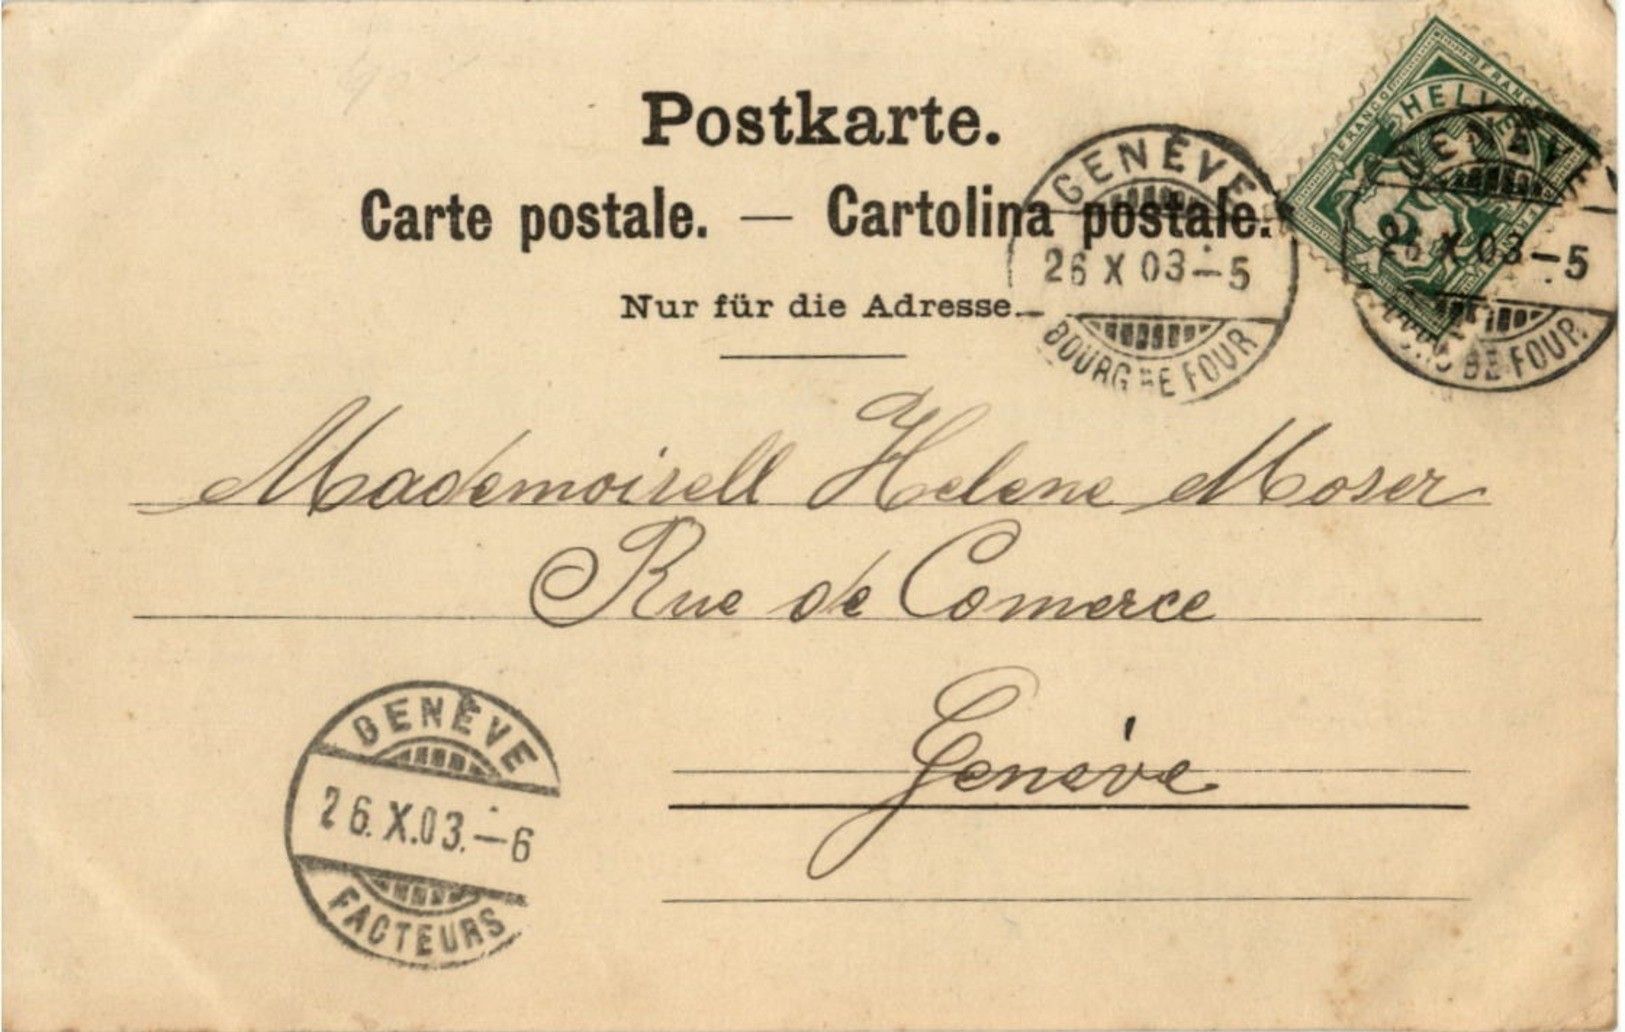 Postkarte.
Carte postale. — Cartolina postale.
Nur für die Adresse.
HELVETIA
FRANCO
5
GENÈVE
26 X 03–5
BOURG DE FOUR
GENÈVE
26 X 03–5
BOURG DE FOUR
Mademoisell Helene Moser
Rue de Comerce
Genève
GENÈVE
26.X.03.–6
FACTEURS